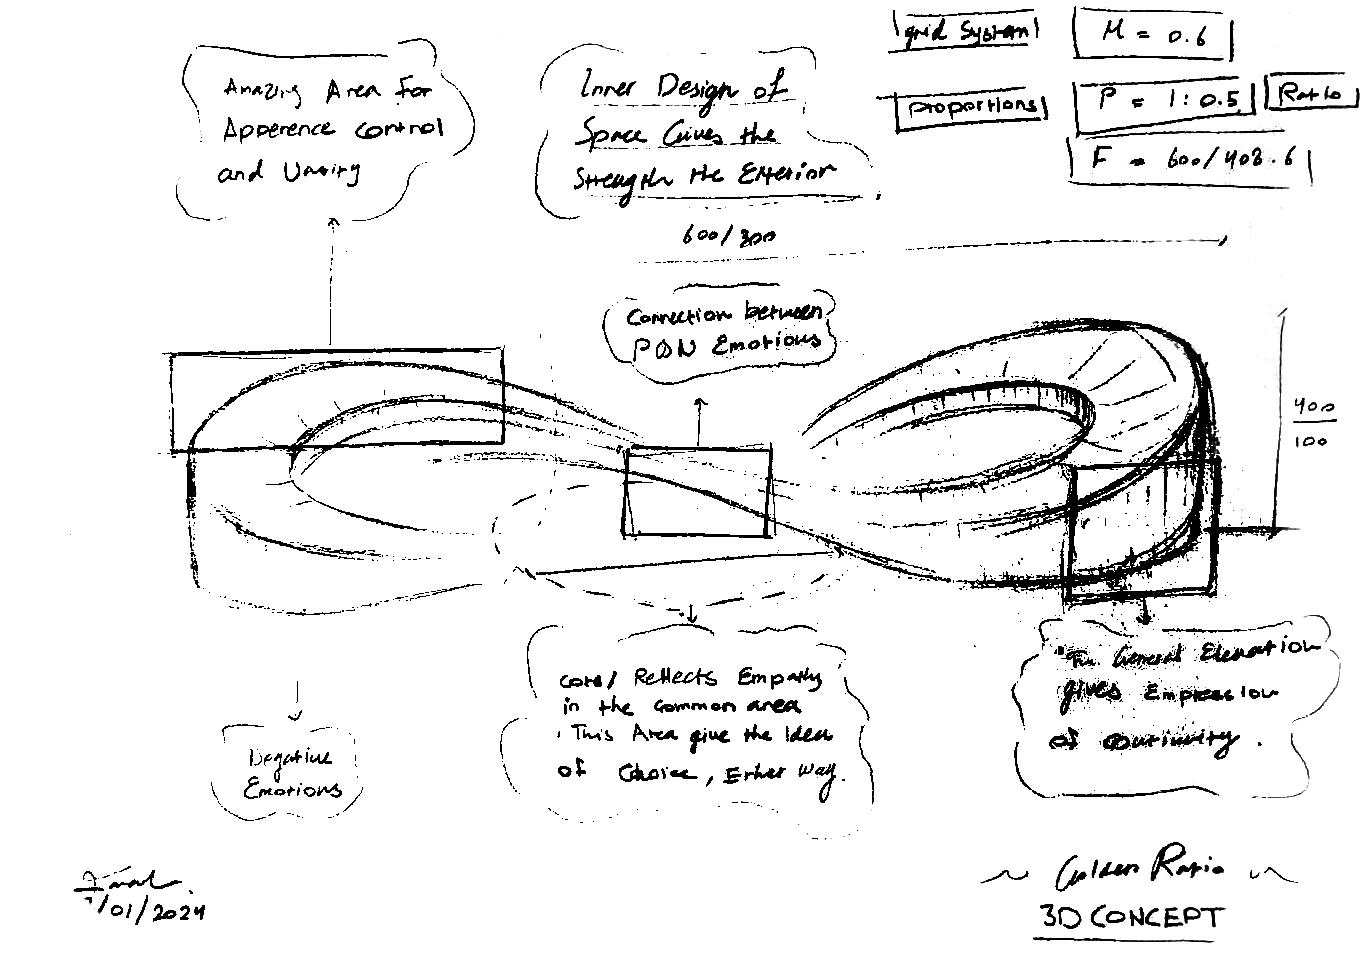 grid System
M = 0.6
Proportions
P = 1:0.5
Ratio
F = 600/408.6
Amazing Area For
Apperence control
and Unity
Inner Design of
Space Gives the
Strength the Exterior
600/300
Connection between
P&N Emotions
400
100
Negative
Emotions
core/ Reflects Empathy
in the common area
This Area give the Idea
of Choice, Either Way.
"The General Elevation
gives Empression
of Continuity.
/01/2024
~ Golden Ratio ~
3D CONCEPT